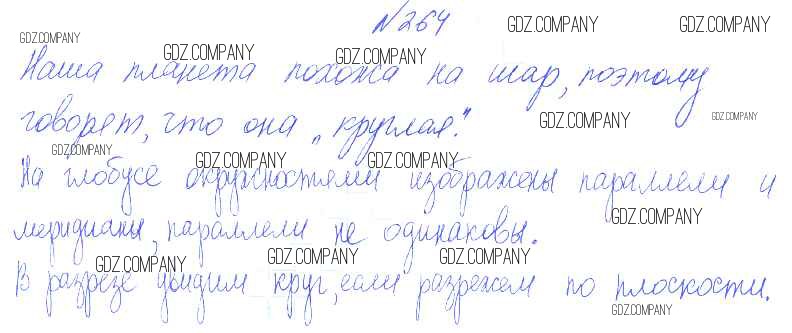 №264
GDZ.COMPANY GDZ.COMPANY GDZ.COMPANY
GDZ.COMPANY GDZ.COMPANY
Наша планета похожа на шар, поэтому
GDZ.COMPANY GDZ.COMPANY
говорят, что она „круглая".
GDZ.COMPANY GDZ.COMPANY GDZ.COMPANY
На глобусе окружностями изображены параллели и
GDZ.COMPANY
меридианы, параллели не одинаковы.
GDZ.COMPANY GDZ.COMPANY GDZ.COMPANY
В разрезе увидим круг, если разрежем по плоскости.
GDZ.COMPANY